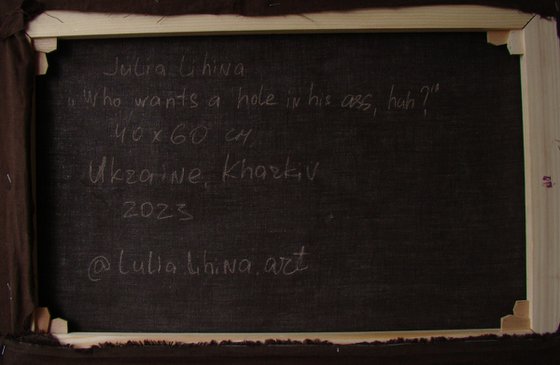 Julia Lihina
"Who wants a hole in his ass, huh?"
40 x 60 см,
Ukraine, Kharkiv
2023
@lulia.lihina.art